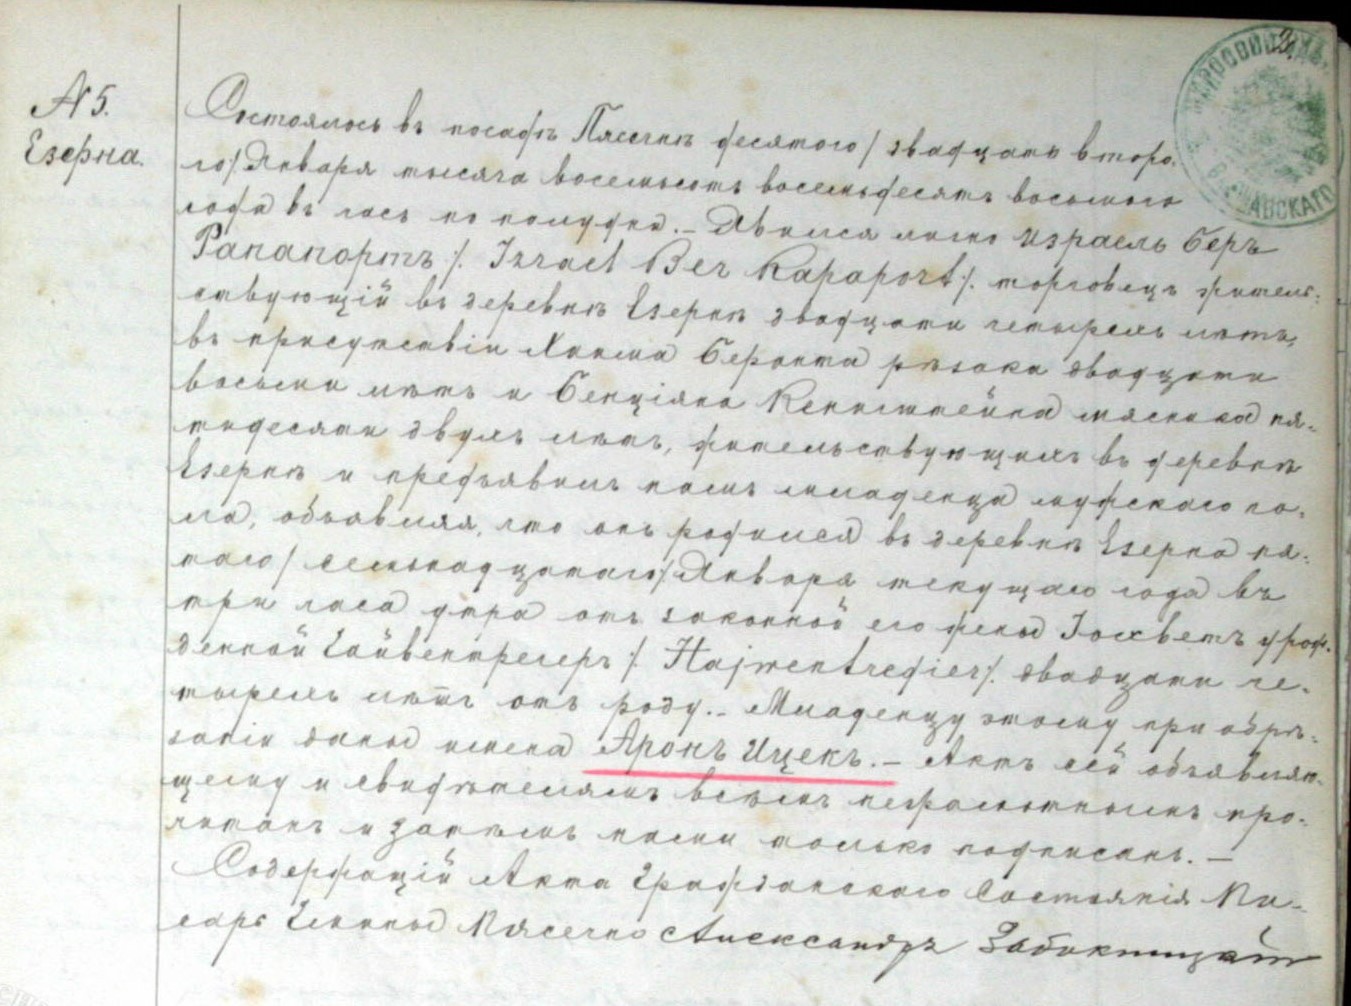 N 5.
Езерна.
Состоялось въ посадѣ Пясечнѣ десятаго / двадцать второ-
го / Января тысяча восемьсотъ восемьдесятъ восьмого
года въ часъ по полудни. – Явился лично Израель Беръ
Рапапортъ /. Izrael Ber Rapaport ./ торговецъ житель-
ствующій въ деревнѣ Езернѣ двадцати четырехъ лѣтъ,
въ присутствіи Хаима рѣзака двадцати
восьми лѣтъ и Бенціяна мясника пя-
тидесяти двухъ лѣтъ, жительствующихъ въ деревнѣ
Езернѣ и предъявилъ намъ младенца мужскаго по-
ла, объявляя, что онъ родился въ деревнѣ Езерна пя-
таго / семьнадцатаго / Января текущаго года въ
три часа утра отъ законной его жены урож-
денной Гайвентрегеръ /. Hajwentregier ./ двадцати че-
тырехъ лѣтъ отъ роду. – Младенцу этому при обрѣ-
заніи даны имена Аронъ Ицекъ. – Актъ сей объявляю-
щему и свидѣтелямъ всѣмъ неграмотнымъ про-
читанъ и затѣмъ нами только подписанъ. –
Содержащій Акта Гражданскаго Состоянія Пи-
сарь Гмины Пясечно Александръ
2.
ВАРШАВСКАГО